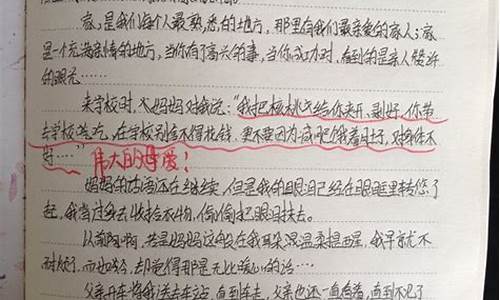 家,是我们每个人最熟悉的地方,那里有我们最亲爱的家人;家
是一个充满亲情的地方,当你有了高兴的事,当你成功时,看到的是亲人赞许
的眼光……
来学校时,妈妈对我说:"我把核桃给你夹开、剥好,你带
去学校吃,在学校别舍不得花钱,更不要因为减肥饿着肚子,对身体不
好……"伟大的母爱!
妈妈的话还在继续,但是我的眼泪已经在眼眶里转悠了
起,我背过身去收拾衣物,偷偷把眼泪抹去。
以前啊,若是妈妈这般在我耳朵温柔提醒,我早就不
耐烦了。而如今,却觉得那是无比暖心的话……
父亲开车将我送去车站,直到车走,父亲也还一直看着,直到不见了